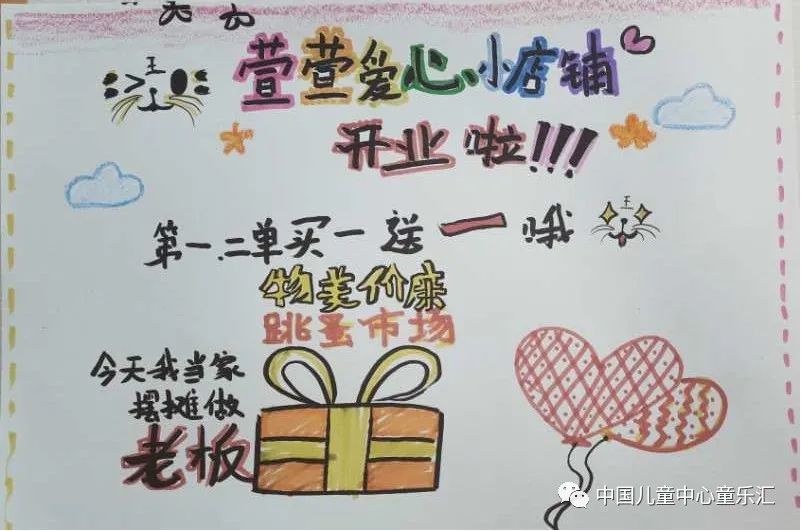 萱萱爱心小店铺
开业啦!!!
第一、二单买一送一哦
物美价廉
跳蚤市场
今天我当家
摆摊做
老板
王
王
中国儿童中心童乐汇